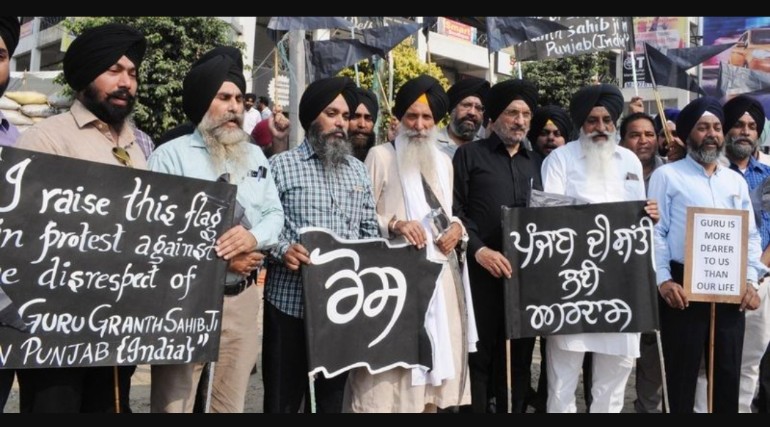 SAHIB JI in
PUNJAB (India)
I raise this flag
in protest against
e disrespect of
GURU GRANTH SAHIB JI
N PUNJAB {India}"
ਰੋਸ
ਪੰਜਾਬ ਦੀ ਸ਼ਾਂਤੀ
ਲਈ
ਅਰਦਾਸ
GURU IS
MORE
DEARER
TO US
THAN
OUR
LIFE